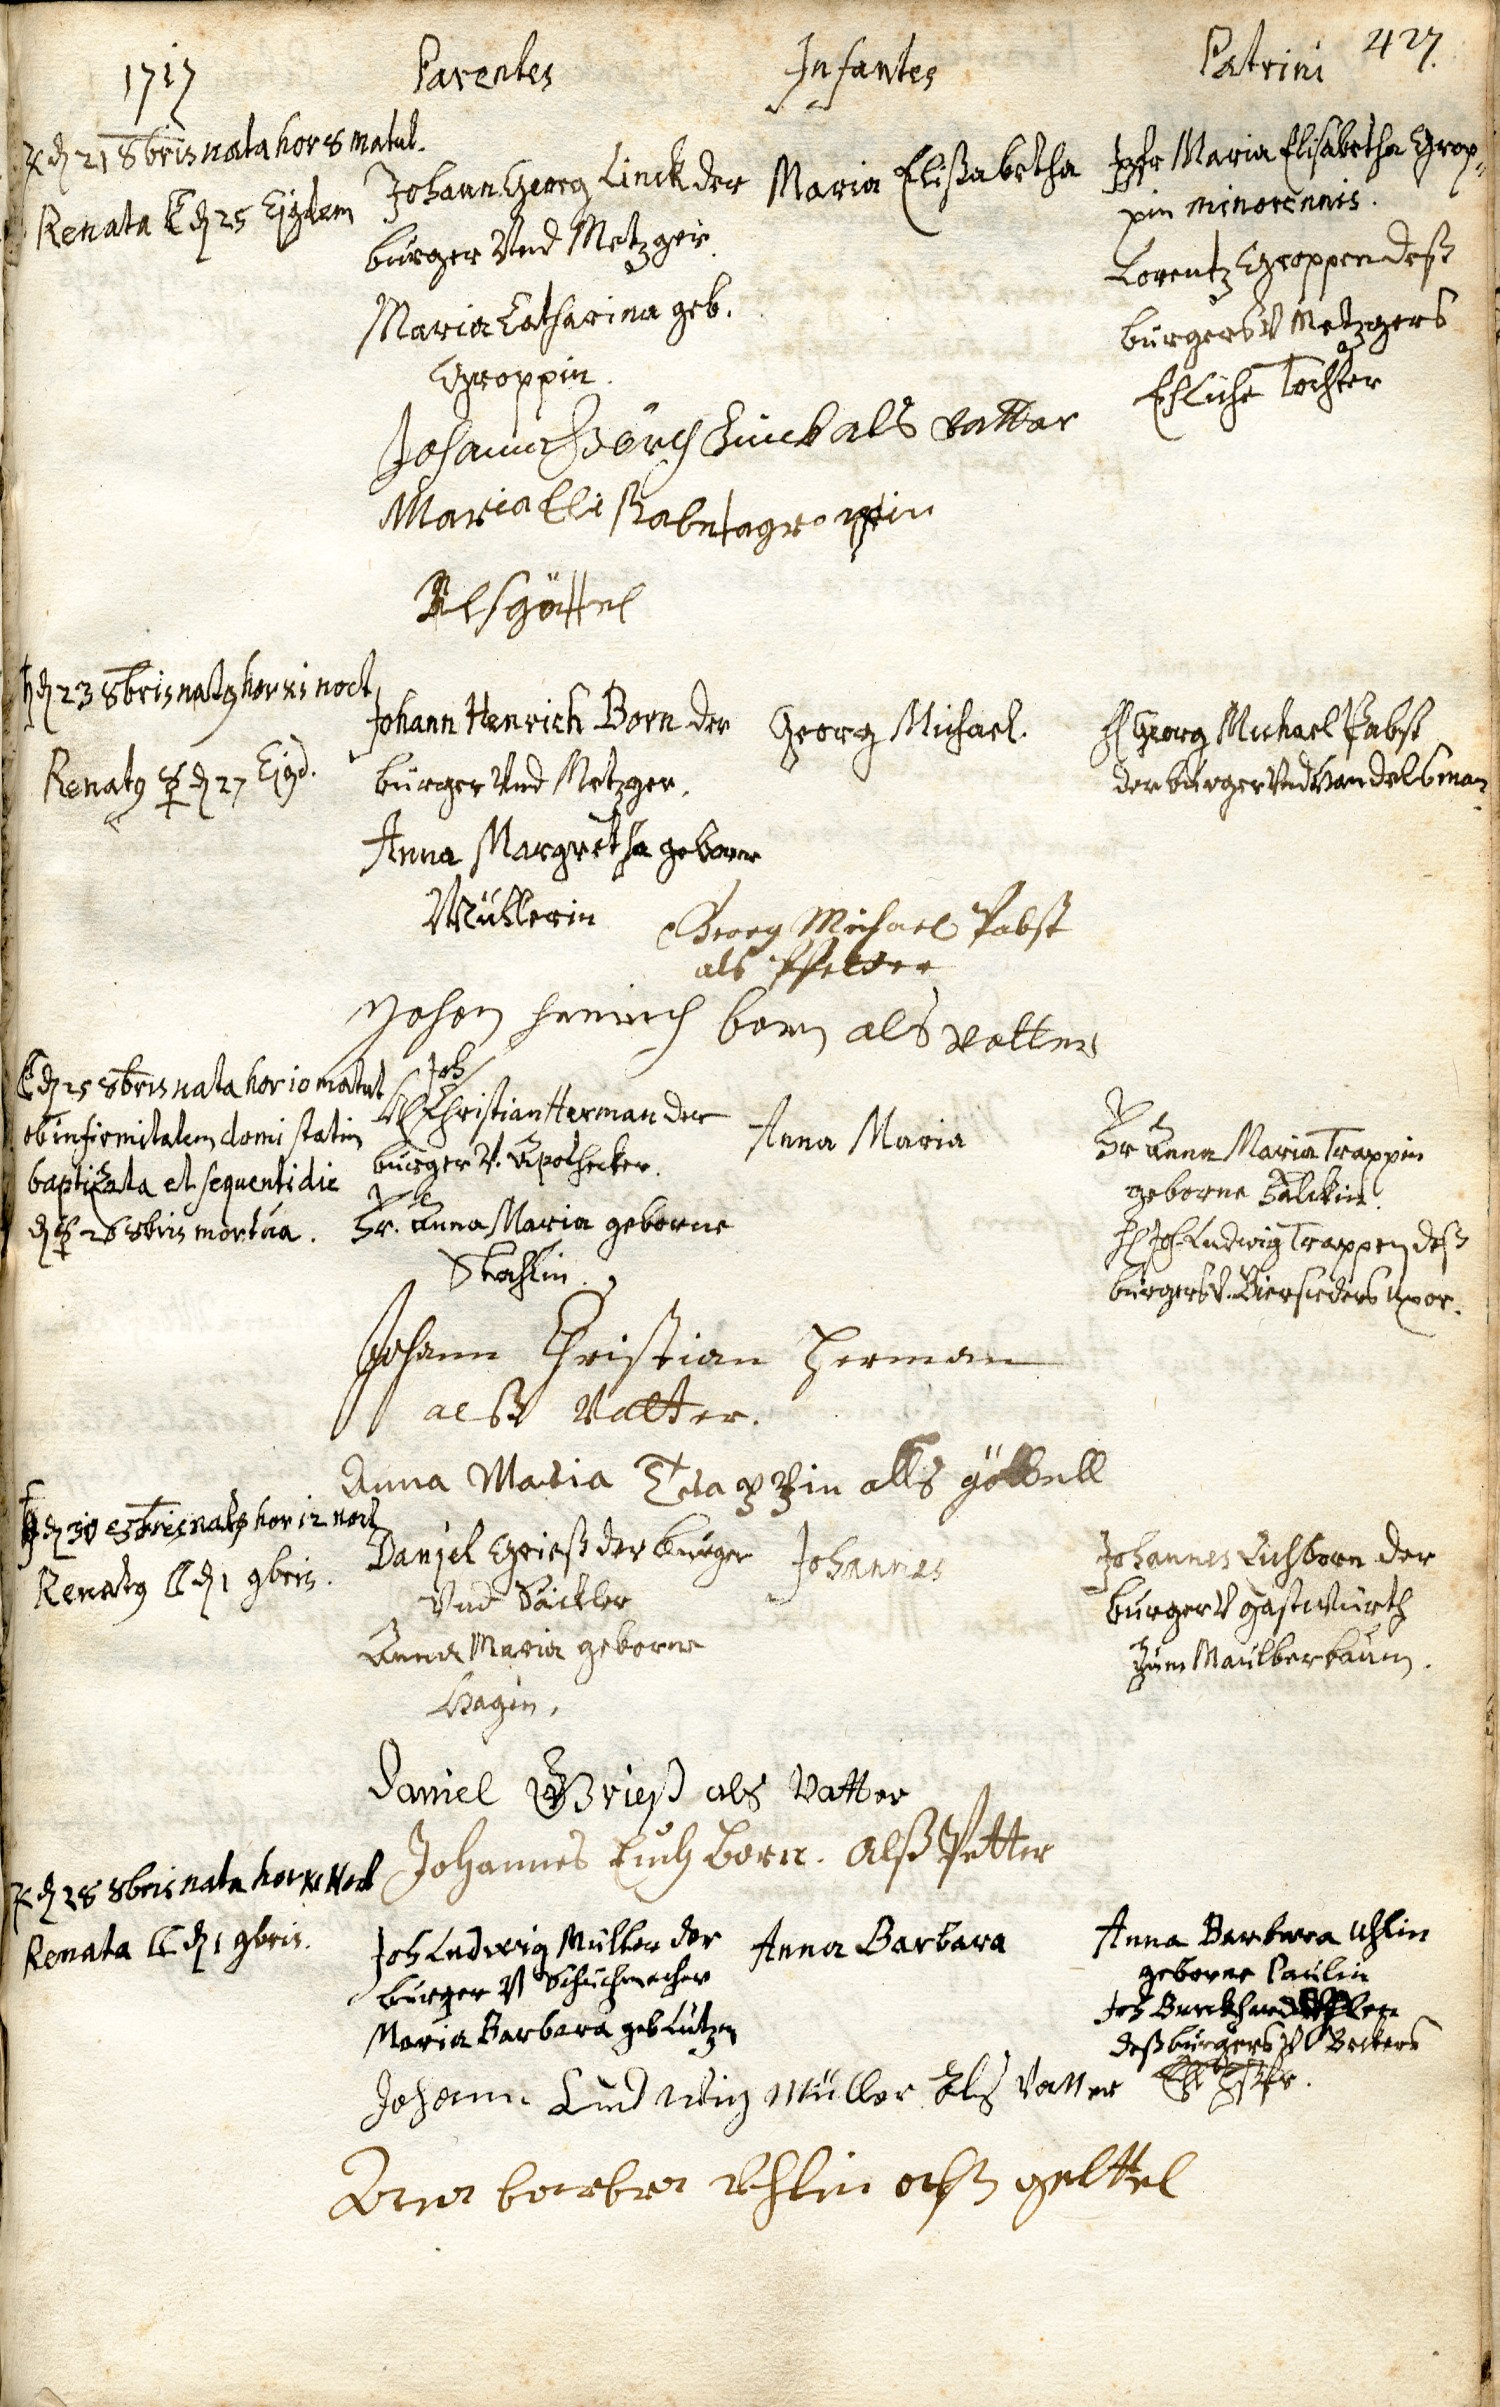 427.
1717 Parentes Infantes Patrini
♃ d 21 8bris nata hor 8 matut.
Renata ☾ d 25 Ejusdem
Johann Georg Linck der
burger Vnd Metzger.
Maria Catharina geb.
Groppin.
Maria Elißabetha
Jgfr Maria Elisabetha Grop„
pin minorennis.
Lorentz Groppen deß
burgers V Metzgers
Ehliche Tochter
Johann Görch Linck als vatter
Maria Elißabeta groppin
Als göttel
♄ d 23 8bris natus hor xi noct
Renatus d 27 Ejusd.
Johann Henrich Born der
burger Vnd Metzger.
Anna Margretha geborne
Müllerin
Georg Michael.
H Georg Michael Pabst
der burger Vnd Handelsman
Georg Michael Pabst
als Pfetter
Johan henrich born als vatter
☾ d 25 8bris nata hor 10 matut
ob infirmitatem domi statim
baptizata et sequenti die
d 26 8bris mortua.
Joh
H Christian Herman der
burger V. Apothecker.
Fr. Anna Maria geborne
Stahlin.
Anna Maria
Fr Anna Maria Trappin
geborne Falckin.
H Joh Ludwig Trappen deß
burgers V. Biersieders uxor.
Johann Christian Herman
alß Vatter.
Anna Maria Trappin alls göttell
♄ d 30 8bris natus hor 12 noct
Renatus ☾ d 1 9bris.
Daniel Grieß der burger
Vnd Säckler
Anna Maria geborne
Hagin.
Johannes
Johannes Eichborn der
burger V gastwürth
Zum Maulberbaum.
Daniel Grieß als Vatter
Johannes Eich born. Alß Petter
♃ d 28 8bris nata hor xi Noct
Renata ☾ d 1 9bris.
Joh Ludwig Müller der
burger V Schuchmacher
Maria Barbara geb Lutzin
Anna Barbara
Anna Barbara Uhlin
geborne Paulin
Joh Burckhard
deß burgers V Beckers
Johann Ludwig Müller Als Vatter
Anna barbra Uhlin alß gelttel